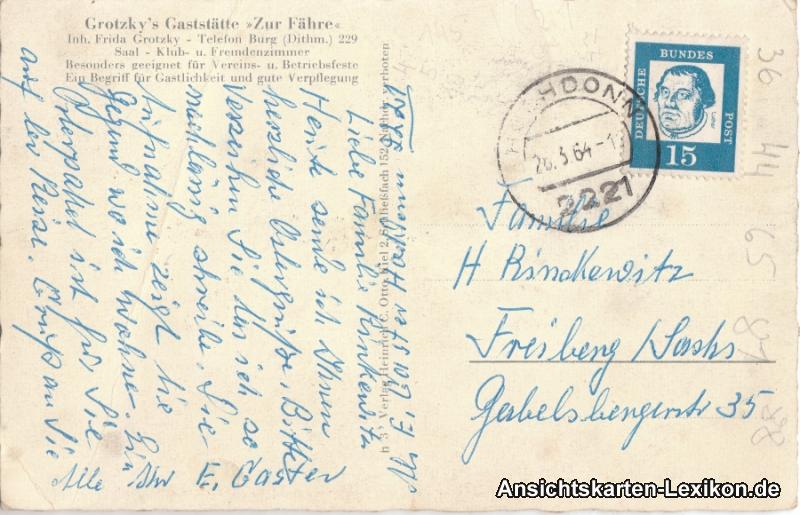 Grotzky's Gaststätte »Zur Fähre«
Inh. Frida Grotzky - Telefon Burg (Dithm.) 229
Saal - Klub- u. Fremdenzimmer
Besonders geeignet für Vereins- u. Betriebsfeste
Ein Begriff für Gastlichkeit und gute Verpflegung
Hochdonn
Liebe Familie Rinkewitz
Heute sende ich Ihnen
herzliche Ostergrüße. Bitte
verzeihn Sie das ich so
nachlässig schreibe. Die
Aufnahme zeigt die
Gegend wo ich wohne. Ein
Osterpaket ist für Sie
auf der Reise. Gruß an Sie
Alle Ihr E. Gaster
Verlag Heinrich C. Otto, Kiel 2, Schließfach 152, Nachdr. verboten
HOCHDONN
26.3.64-1
2221
DEUTSCHE
BUNDES
POST
Luther
15
Familie
H Rinckewitz
Freiberg/Sachs
Gabelsbergerstr 35
36
44
65
87
Ansichtskarten-Lexikon.de